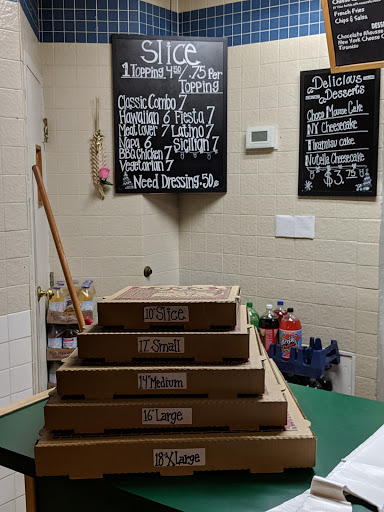 Slice
1 Topping. 4.50 / .75 Per
Topping
Classic Combo 7
Hawaiian 6 Fiesta 7
Meat Lover 7 Latino 7
Napa 6 Sicilian 7
BBQ Chicken 7
Vegetarian 7
Need Dressing .50
French Fries
Chips & Salsa
DESS
Chocolate Mousse
New York Cheese
Tiramisu
Delicious
Desserts
Choco Mousse Cake
NY Cheesecake
Tiramisu cake
Nutella Cheesecake
$3.75
10" Slice
12" Small
14" Medium
16" Large
18" XLarge